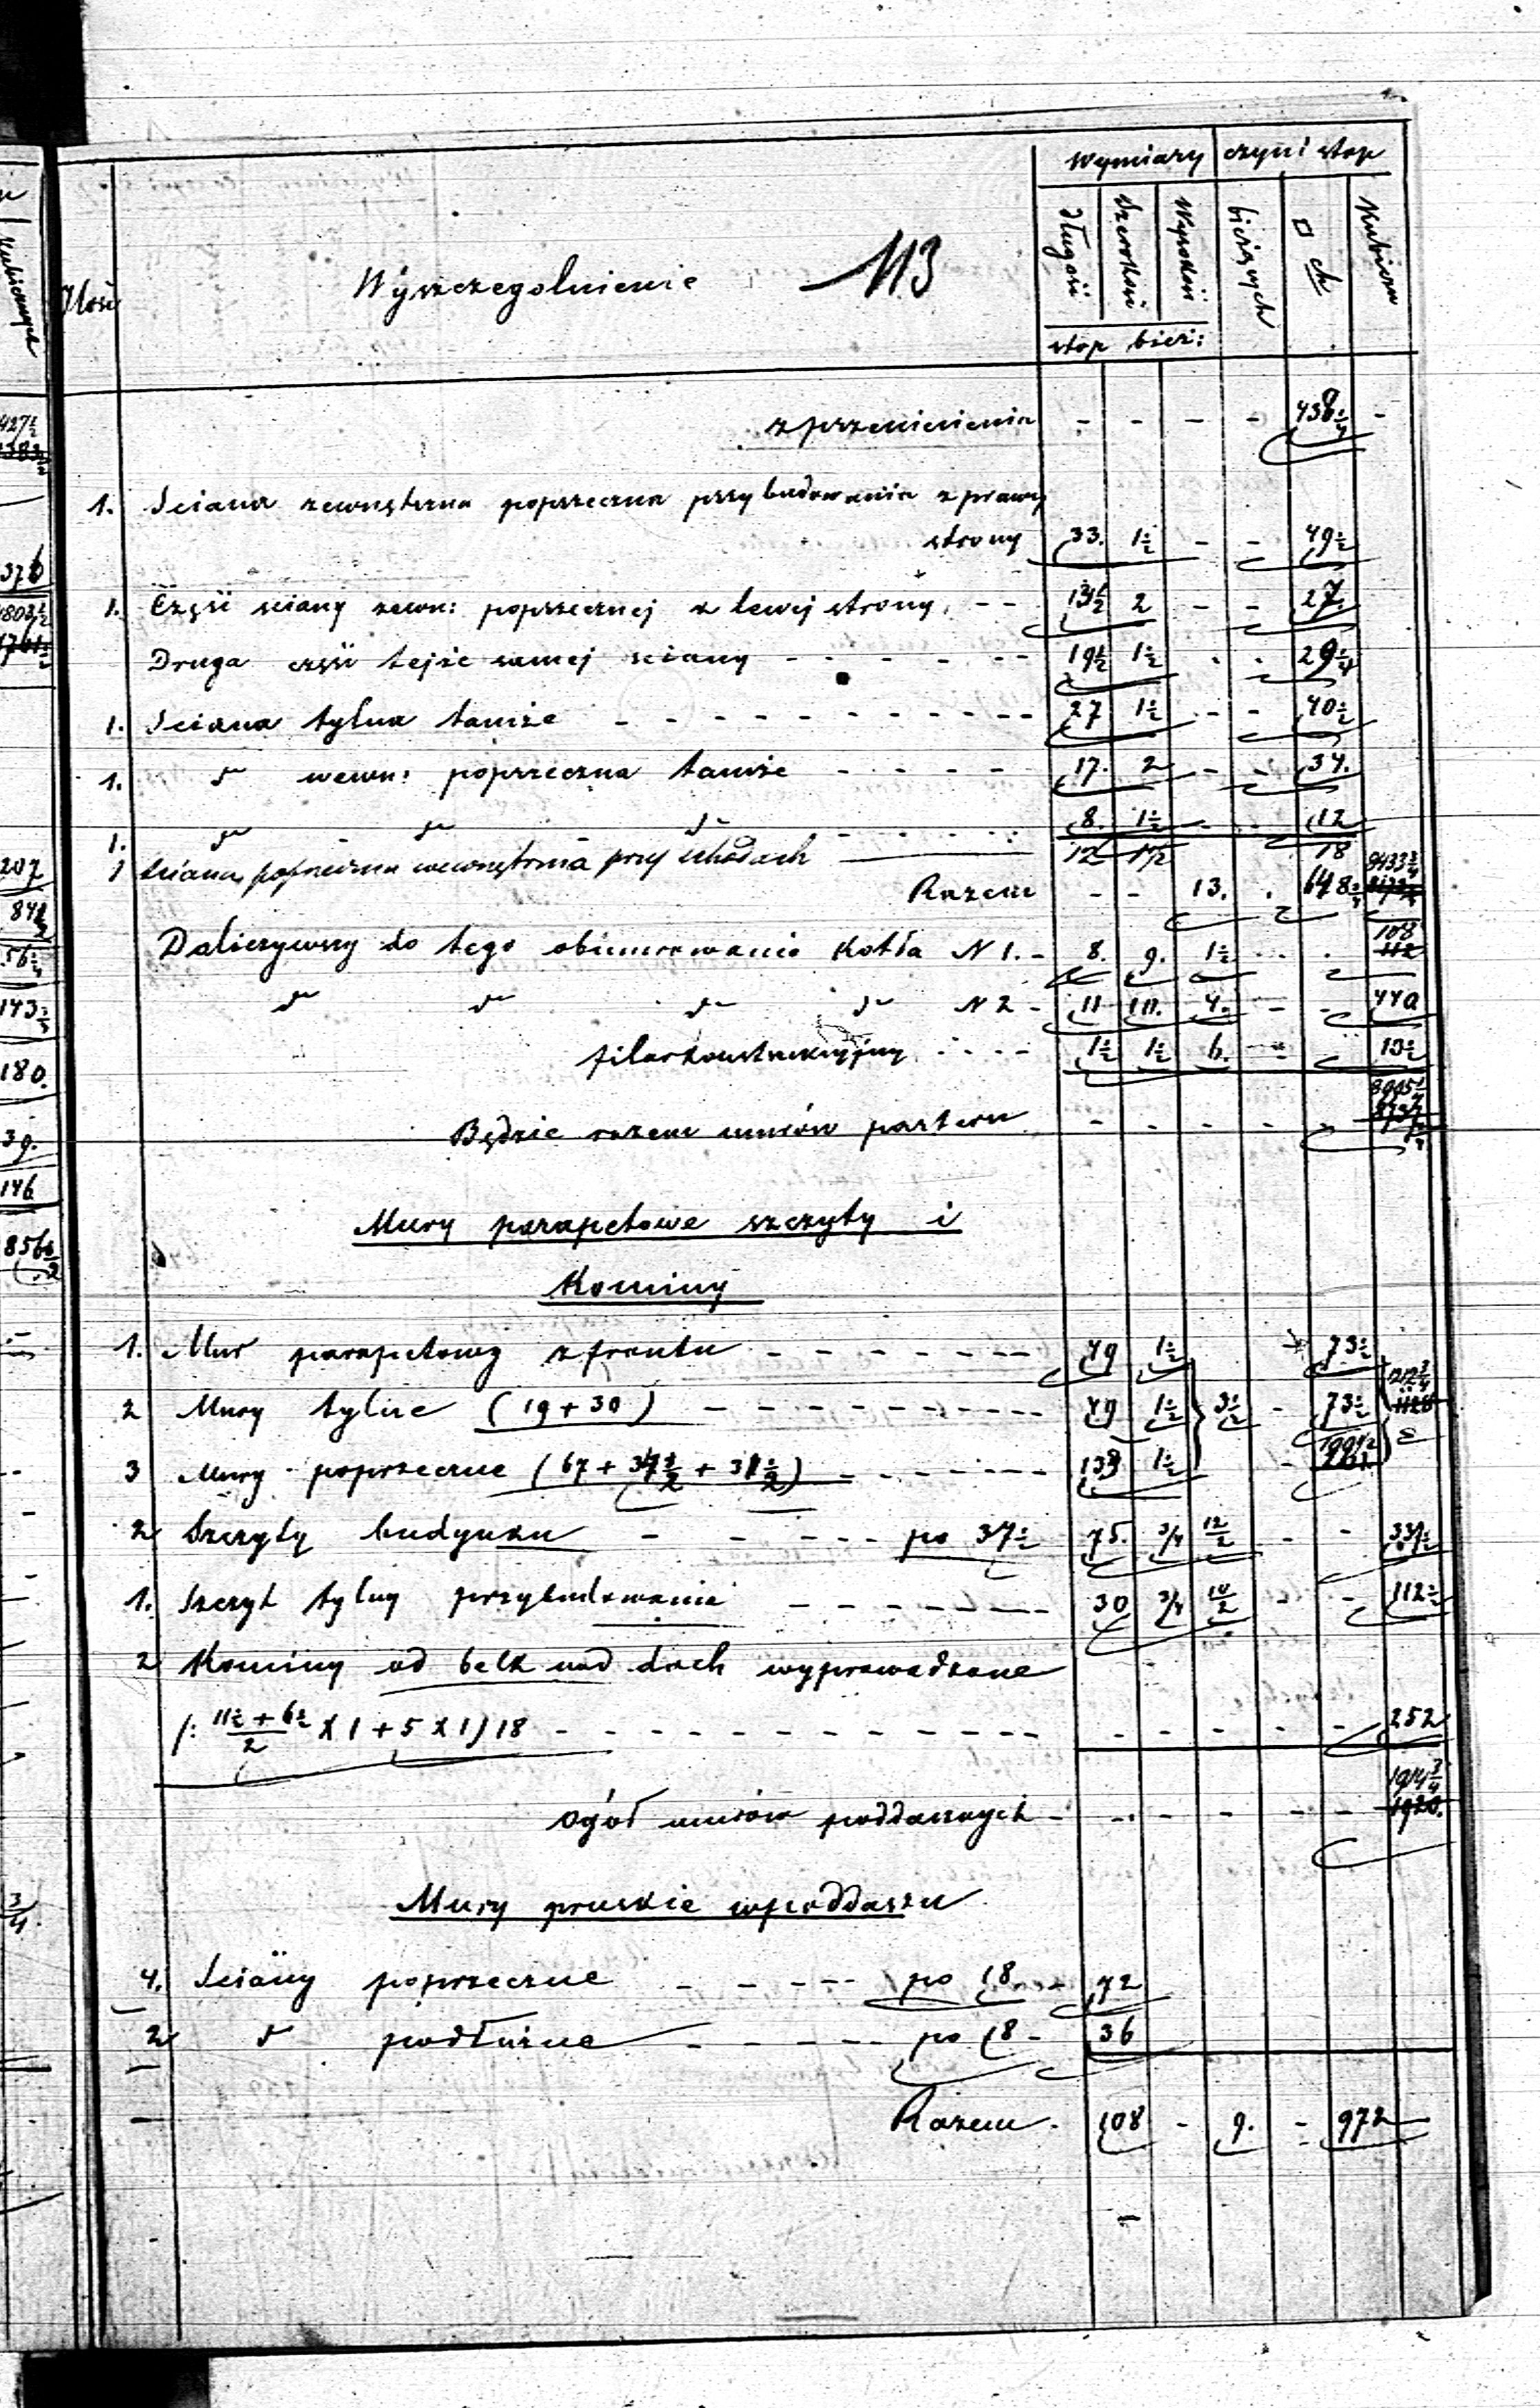 Wymiary czyni stop
Ilość Wyszczegolnienie 113 długość szerokość Wysokość bieżących □ ch Kubiczn
stop bież:
z przeniesienia - - - - 438 1/4 -
1. Sciana zewnętrzna poprzeczna przybudowania z prawej
strony 33. 1 1/2 - - 49 1/2
1. Część sciany zewn: poprzecznej z lewej strony. - - 13 1/2 2 - - 27.
Druga część tejże samej sciany - - - - - - 19 1/2 1 1/2 . . 29 1/4
1. Sciana tylna tamże - - - - - - - - - - 27 1 1/2 - - 40 1/2
1. " wewn: poprzeczna tamże - - - - 17. 2 - - 34.
1. " " " - - - - 8. 1 1/2 - - 12
1 sciana poprzeczna wewnętrzna przy schodach 12 1 1/2 18
Razem - - 13. . 648 3/4 8433 3/4
Doliczywszy do tego obmurowanie Kotła N 1. - 8. 9. 1 1/2 - . 108 112
" " " " N 2 - 11 10. 4. - - 440
filar konstrukcyjny - - - - 1 1/2 1 1/2 6. - - 13 1/2
Będzie razem murów parteru - - - - - 8995 1/4
Mury parapetowe szczyty i
Kominy
1. Mur parapetowy z frontu - - - - - - - 49 1 1/2 73 1/2
2 Mury tylne (19 + 30) - - - - - - - - - 49 1 1/2 3 1/2 - 73 1/2 1212 3/4
3 Mury poprzeczne (67 + 34 1/2 + 31 1/2) - - - - - - 133 1 1/2 - 199 1/2
2 Szczyty budynku - - - - - po 37 1/2 75. 3/4 12/2 - - 337 1/2
1. Szczyt tylny przybudowania - - - - - - 30 3/4 10/2 - - 112 1/2
2 Kominy od belk nad dach wyprowadzone
/: 11 1/2 + 6 1/2 / 2 X 1 + 5 X 1) 18 - - - - - - - - - - - - - - - - - 252
Ogół murów poddasznych - - - - - - 1914 3/4 1920.
Mury pruskie w poddaszu
4. Sciany poprzeczne - - - - - po 18 - 72
2 " podłużne - - - - po 18 - 36
Razem - 108 - 9. - 972
427 1/2
376
207
84 1/2
56 1/4
143 3/4
180.
39.
146